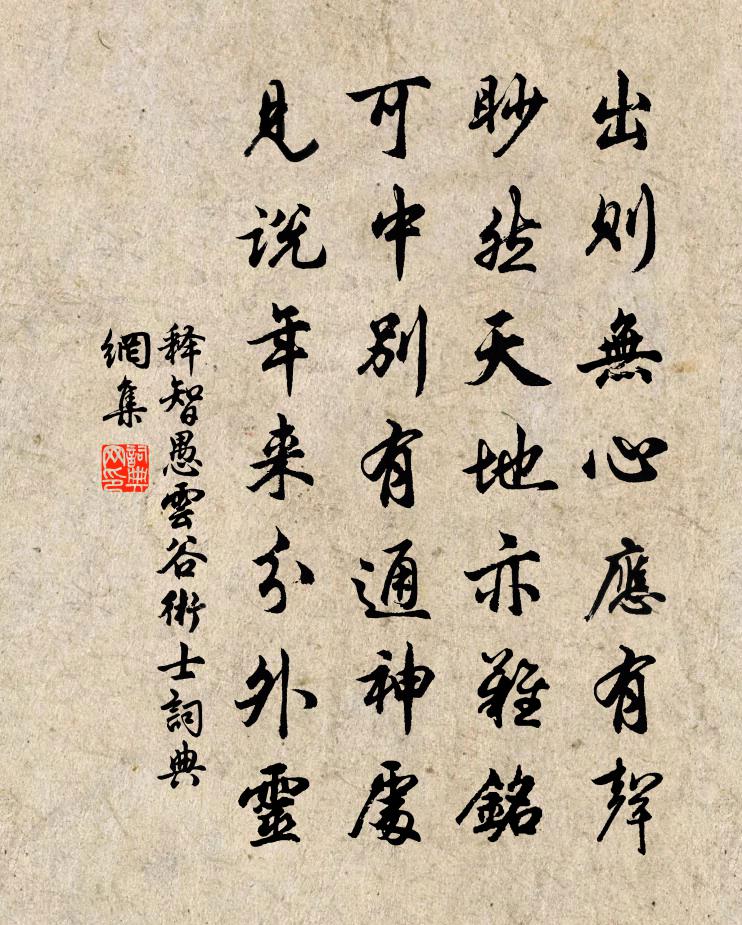 出則無心應有聲
眇然天地亦難銘
可中別有通神處
見說年来分外靈
释智愚雲谷術士詞典
網集
詞典
网印